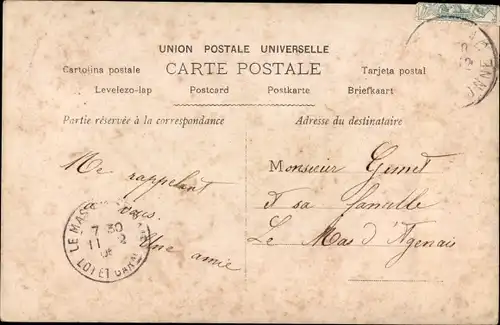 UNION POSTALE UNIVERSELLE
Cartolina postale CARTE POSTALE Tarjeta postal
Levelezo-lap Postcard Postkarte Briefkaart
Partie réservée à la correspondance
Adresse du destinataire
Me rappelant
à vous
Une amie
Monsieur
et sa famille
Le Mas d'Agenais
LE MAS
7 30
11 2
LOT ET GAR
ONNE